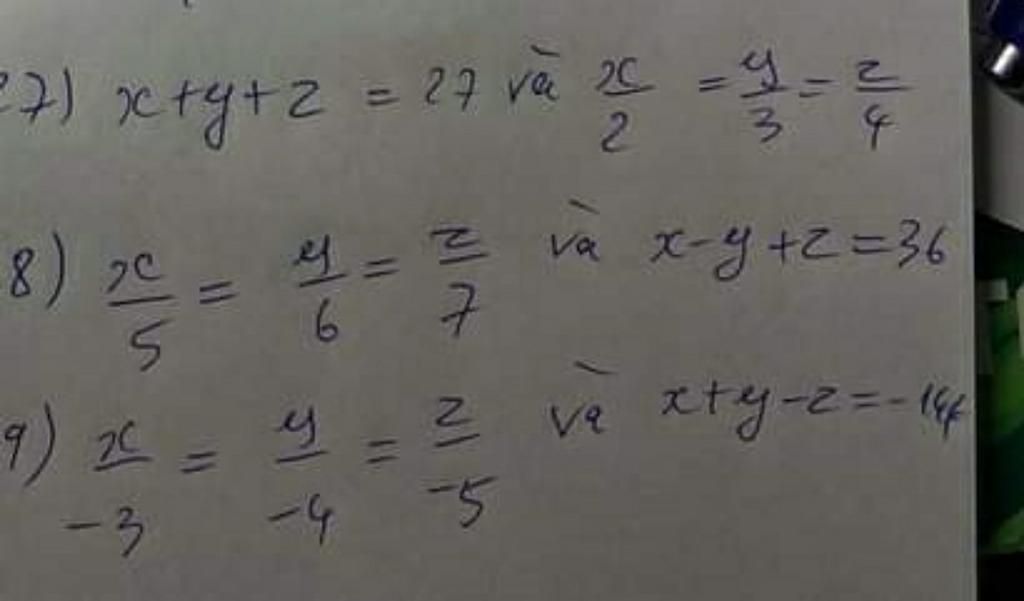 27) x+y+z = 27 và x/2 = y/3 = z/4
8) x/5 = y/6 = z/7 và x-y+z=36
9) x/-3 = y/-4 = z/-5 và x+y-z=